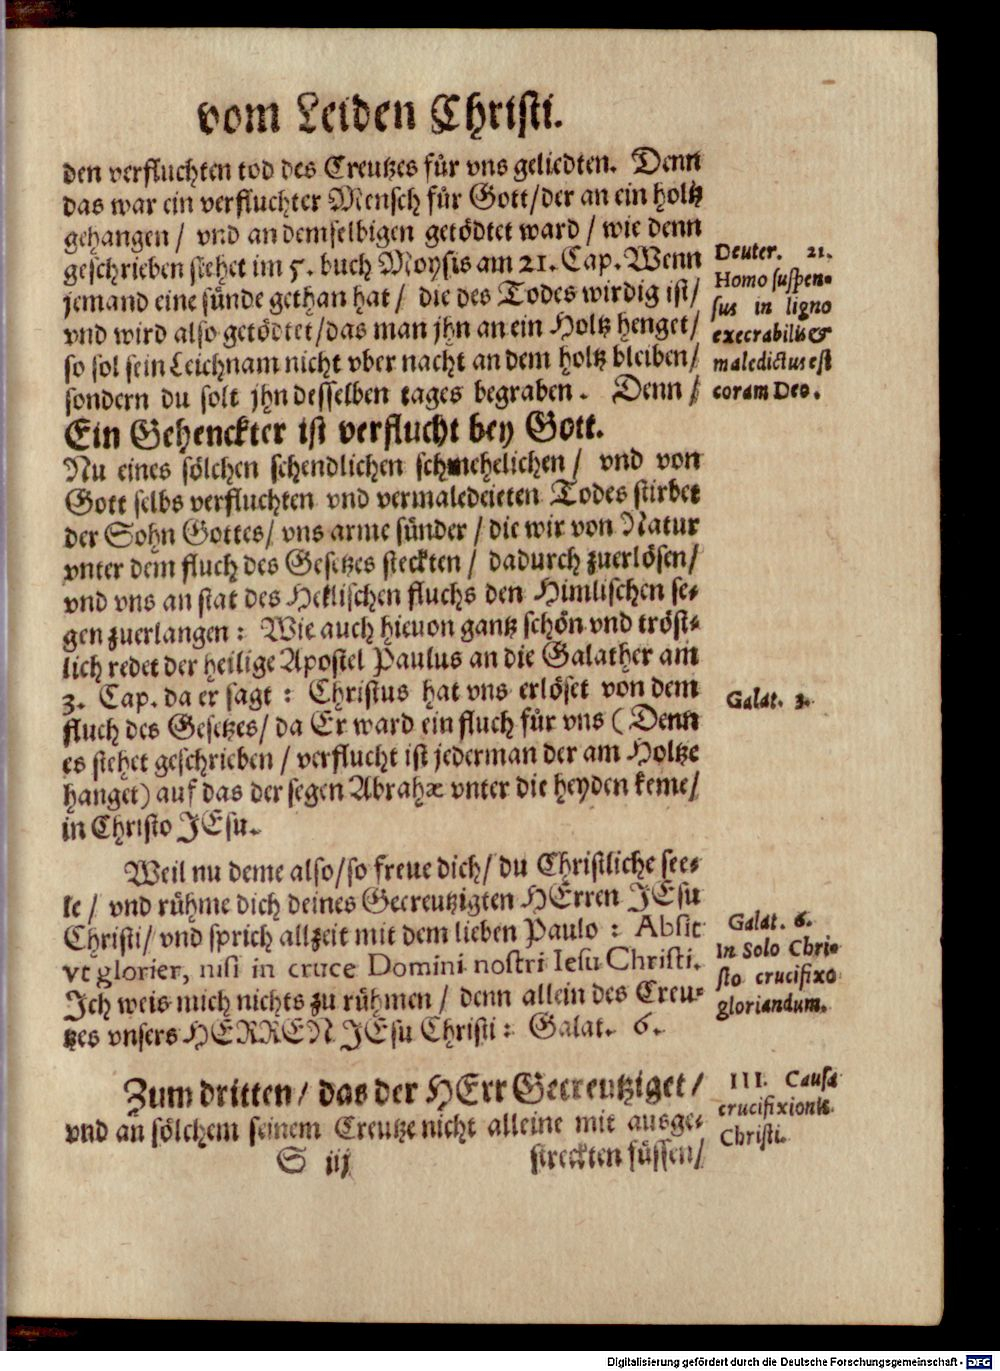 vom Leiden Christi.
den verfluchten tod des Creutzes für vns geliedten. Denn
das war ein verfluchter Mensch für Gott/der an ein holtz
gehangen / vnd an demselbigen getödtet ward / wie denn
geschrieben stehet im 5. buch Moysis am 21. Cap. Wenn
jemand eine sünde gethan hat / die des Todes wirdig ist/
vnd wird also getödtet/das man jhn an ein Holtz henget/
so sol sein Leichnam nicht vber nacht an dem holtz bleiben/
sondern du solt jhn desselben tages begraben. Denn /
Deuter. 21.
Homo suspen-
sus in ligno
execrabilis &
maledictus est
coram Deo.
Ein Gehenckter ist verflucht bey Gott.
Nu eines sölchen schendlichen schmehelichen / vnd von
Gott selbs verfluchten vnd vermaledeieten Todes stirbet
der Sohn Gottes/ vns arme sünder / die wir von Natur
vnter dem fluch des Gesetzes steckten / dadurch zuerlösen/
vnd vns an stat des Hellischen fluchs den Himlischen se-
gen zuerlangen : Wie auch hieuon gantz schön vnd tröst-
lich redet der heilige Apostel Paulus an die Galather am
3. Cap. da er sagt : Christus hat vns erlöset von dem
Galat. 3.
fluch des Gesetzes/ da Er ward ein fluch für vns ( Denn
es stehet geschrieben / verflucht ist jederman der am Holtze
hanget) auf das der segen Abrahæ vnter die heyden keme/
in Christo JEsu.
Weil nu deme also/so freue dich/ du Christliche see-
le / vnd rühme dich deines Gecreutzigten HErren JEsu
Christi/ vnd sprich allzeit mit dem lieben Paulo : Absit
vt glorier, nisi in cruce Domini nostri Iesu Christi.
Ich weis mich nichts zu rühmen / denn allein des Creu-
tzes vnsers HERREN JEsu Christi : Galat. 6.
Galat. 6.
In Solo Chri-
sto crucifixo
gloriandum.
Zum dritten / das der HErr Gecreutziget /
vnd an sölchem seinem Creutze nicht alleine mit ausge-
III. Causa
crucifixionis
Christi.
S iij
streckten füssen/
Digitalisierung gefördert durch die Deutsche Forschungsgemeinschaft - DFG